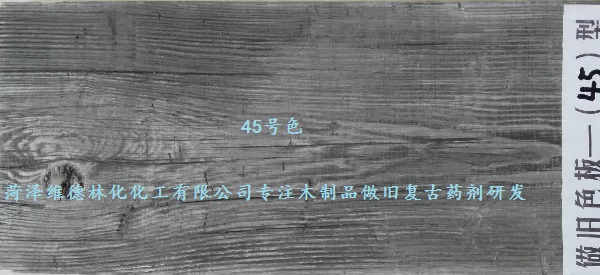 45号色
菏泽维德林化化工有限公司专注木制品做旧复古药剂研发
做旧色板—(45)型